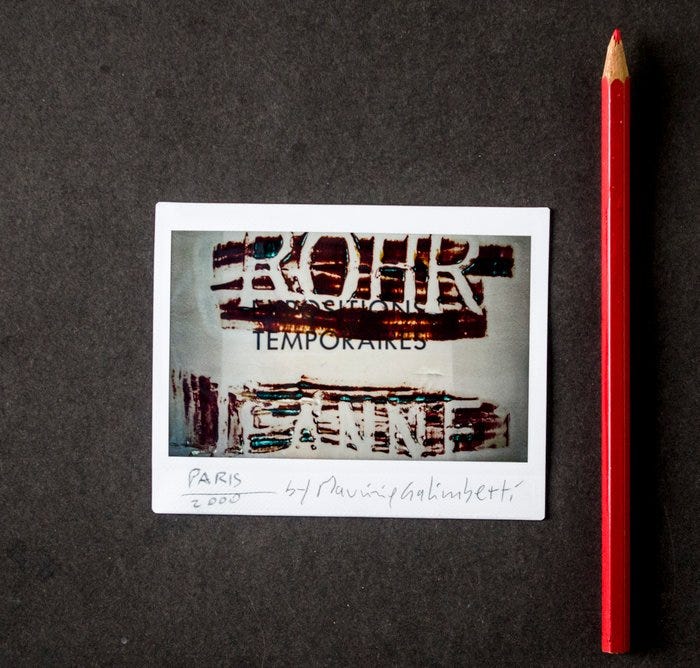 ROHR
EXPOSITIONS
TEMPORAIRES
JEANNE
PARIS
2000
by Maurizio Galimberti